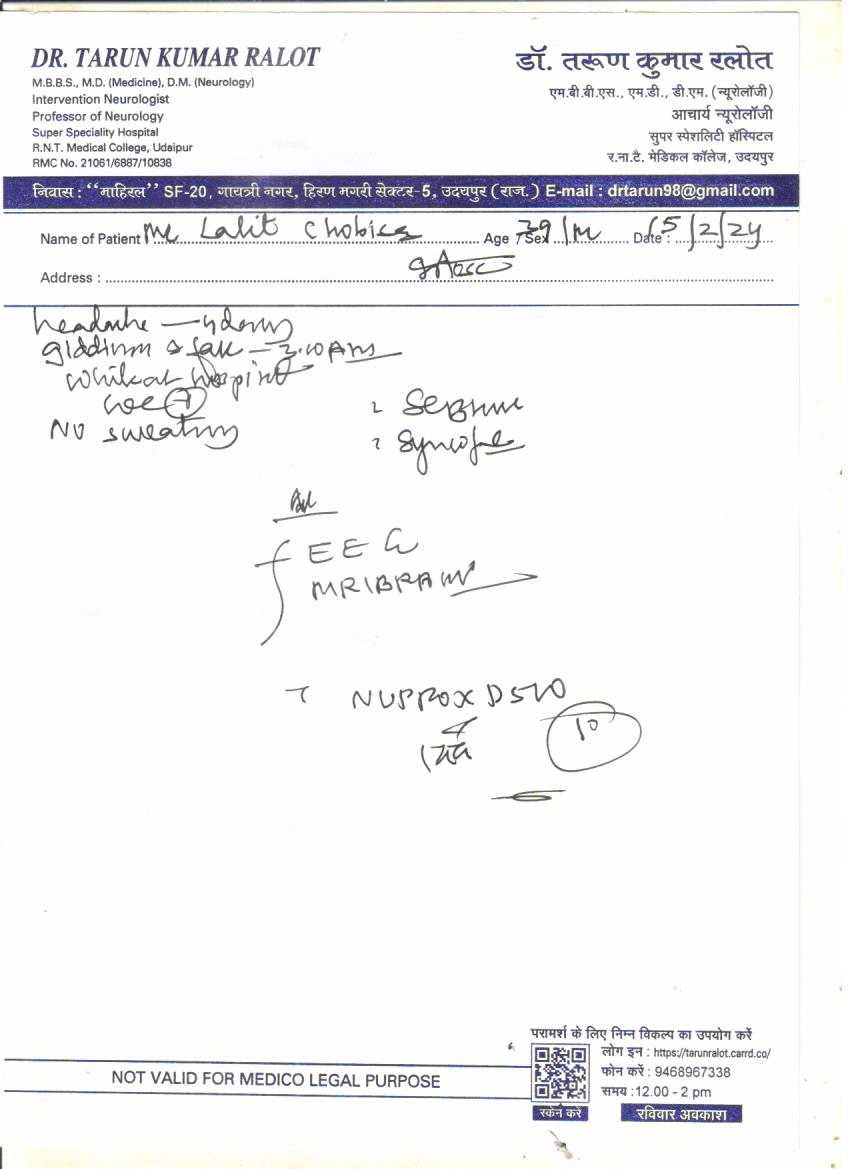 DR. TARUN KUMAR RALOT
M.B.B.S., M.D. (Medicine), D.M. (Neurology)
Intervention Neurologist
Professor of Neurology
Super Speciality Hospital
R.N.T. Medical College, Udaipur
RMC No. 21061/6887/10838
डॉ. तरूण कुमार रलोत
एम.बी.बी.एस., एम.डी., डी.एम. (न्यूरोलॉजी)
आचार्य न्यूरोलॉजी
सुपर स्पेशलिटी हॉस्पिटल
र.ना.टै. मेडिकल कॉलेज, उदयपुर
निवास : “माहिरल” SF-20, गायत्री नगर, हिरण मगरी सेक्टर-5, उदयपुर (राज.) E-mail : drtarun98@gmail.com
Name of Patient Mr Lalit Age / Sex 39/M Date : 15/2/24
Address :
headache
giddiness & fall
while at
No sweating
? Syncope
Adv
EEG
MRI BRAIN
10
NOT VALID FOR MEDICO LEGAL PURPOSE
परामर्श के लिए निम्न विकल्प का उपयोग करें
लोग इन : https://tarunralot.carrd.co/
फोन करें : 9468967338
समय :12.00 - 2 pm
स्कैन करें
रविवार अवकाश